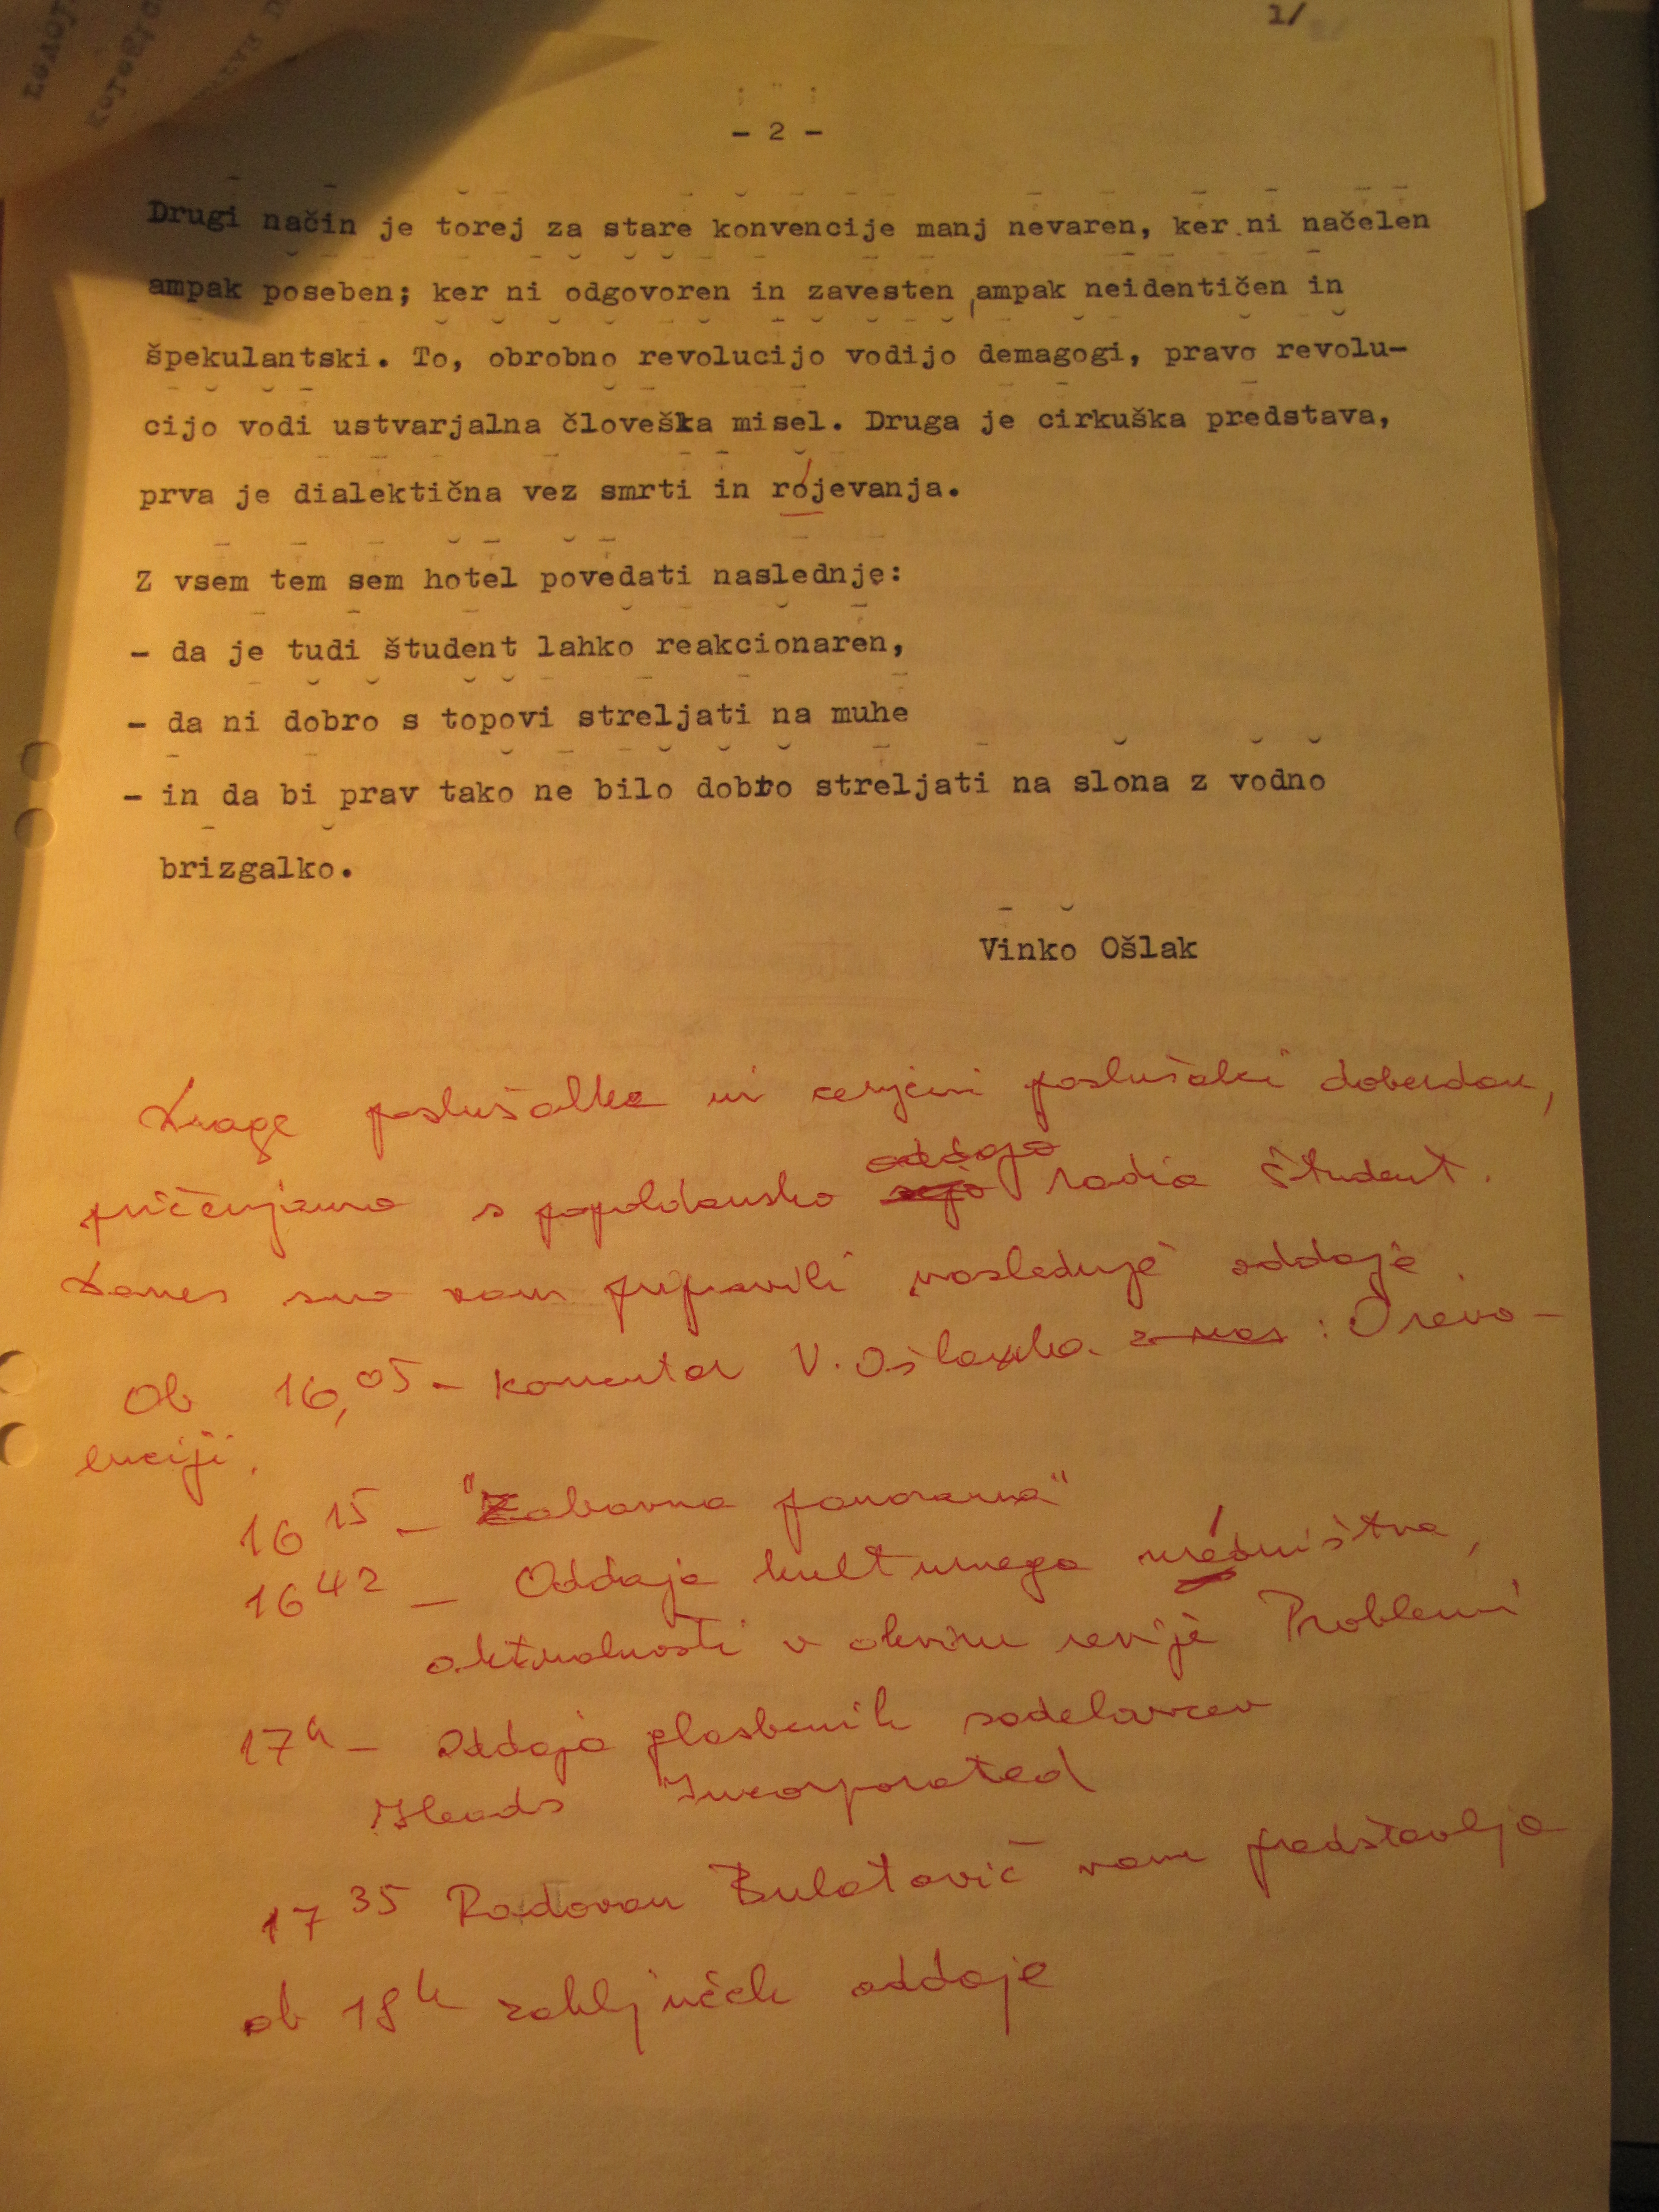 1/
- 2 -
Drugi način je torej za stare konvencije manj nevaren, ker ni načelen
ampak poseben; ker ni odgovoren in zavesten, ampak neidentičen in
špekulantski. To, obrobno revolucijo vodijo demagogi, pravo revolu-
cijo vodi ustvarjalna človeška misel. Druga je cirkuška predstava,
prva je dialektična vez smrti in rójevanja.
Z vsem tem sem hotel povedati naslednje:
- da je tudi študent lahko reakcionaren,
- da ni dobro s topovi streljati na muhe
- in da bi prav tako ne bilo dobro streljati na slona z vodno
brizgalko.
Vinko Ošlak
Drage poslušalke in cenjeni poslušalci doberdan,
oddajo
pričenjamo s popoldansko radia študent.
Danes smo vam pripravili naslednje oddaje.
Ob 16,05 - komentar V. Ošlaka : O revo-
luciji.
16 15 - "Zabavna panorama"
16 42 - Oddaja kulturnega uredništva,
aktualnosti v okviru revije Problemi
17h - Oddaja glasbenih sodelavcev
Heads Incorporated
17 35 Radovan Bulatović vam predstavlja
ob 18h zaključek oddaje